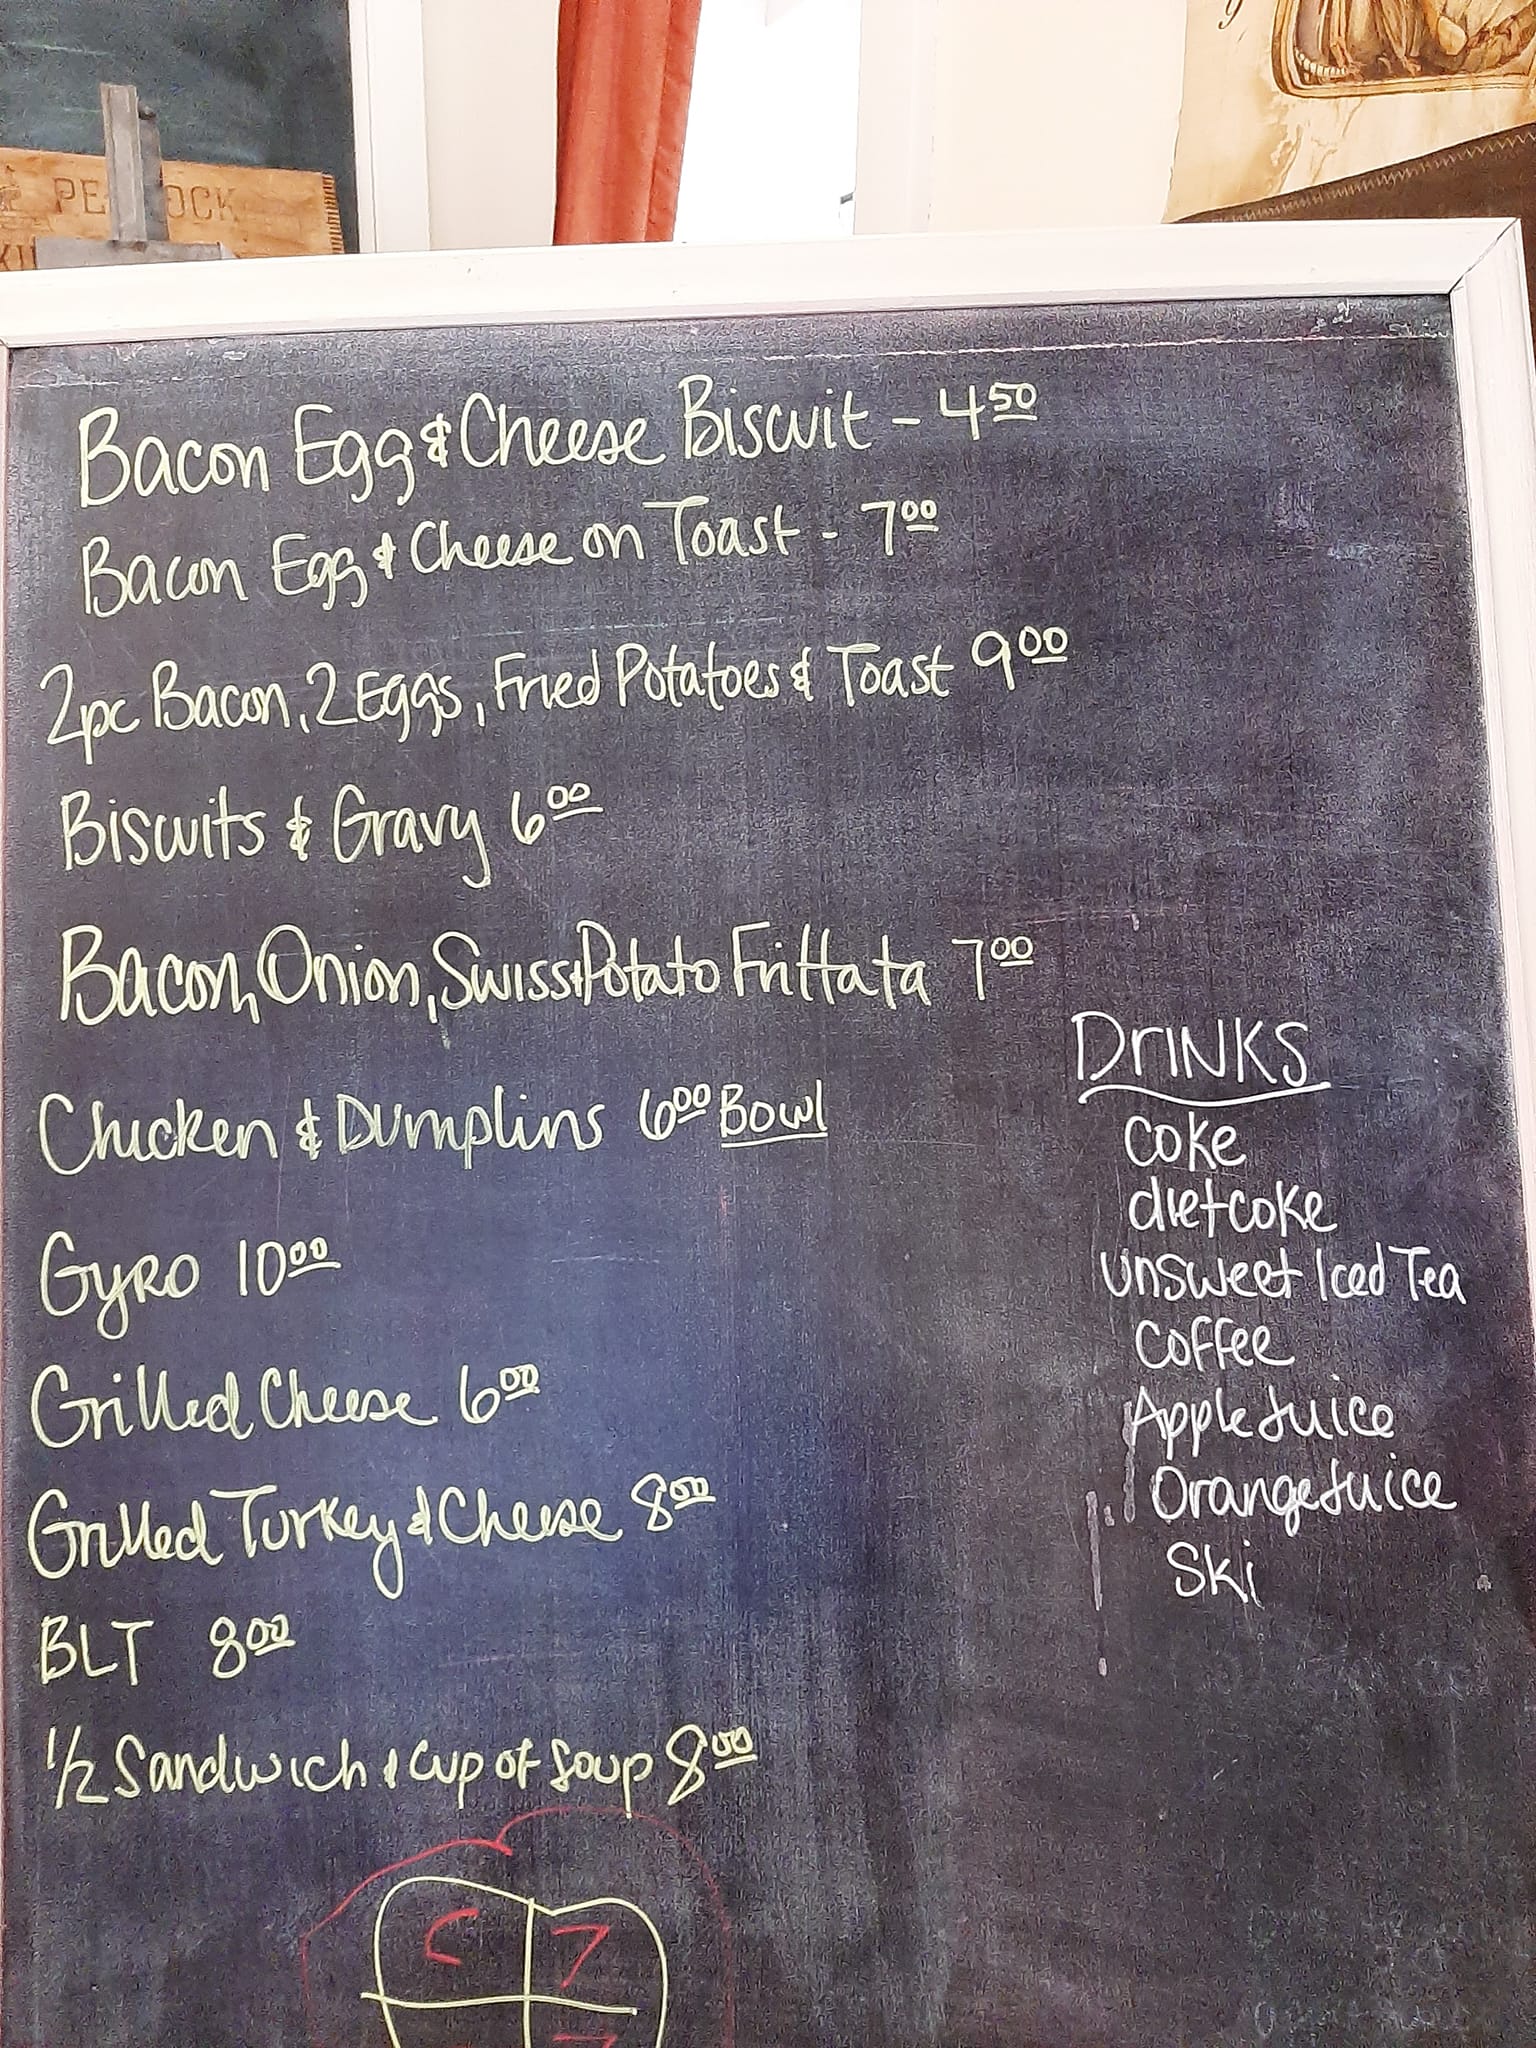 PE OCK
Bacon Egg & Cheese Biscuit - 4 50
Bacon Egg & Cheese on Toast - 7 00
2pc Bacon, 2 Eggs, Fried Potatoes & Toast 9 00
Biscuits & Gravy 6 00
Bacon, Onion, Swiss & Potato Frittata 7 00
Chicken & Dumplins 6 00 Bowl
Gyro 10 00
Grilled Cheese 6 00
Grilled Turkey & Cheese 8 00
BLT 8 00
1/2 Sandwich & Cup of Soup 8 00
C 7
DrINKS
coke
diet coke
unsweet Iced Tea
coffee
Apple Juice
Orange Juice
Ski